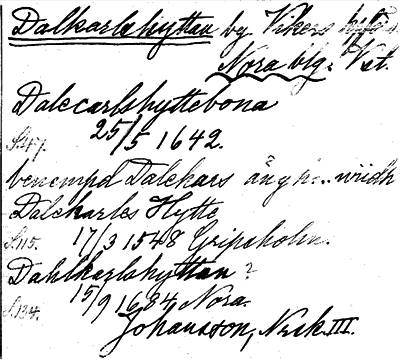 Dalkarlshyttan by Vikers
Nora blg. Vst.
Dalecarlshyttebona
25/5 1642.
S.47.
benempd Dalekars ängh... wiidh
Dalekarles Hytte
S.115. 17/3 1548 Gripsholm.
Dahlkarlshyttan?
15/9 1684 Nora.
S.134.
Johansson, Norsk III.